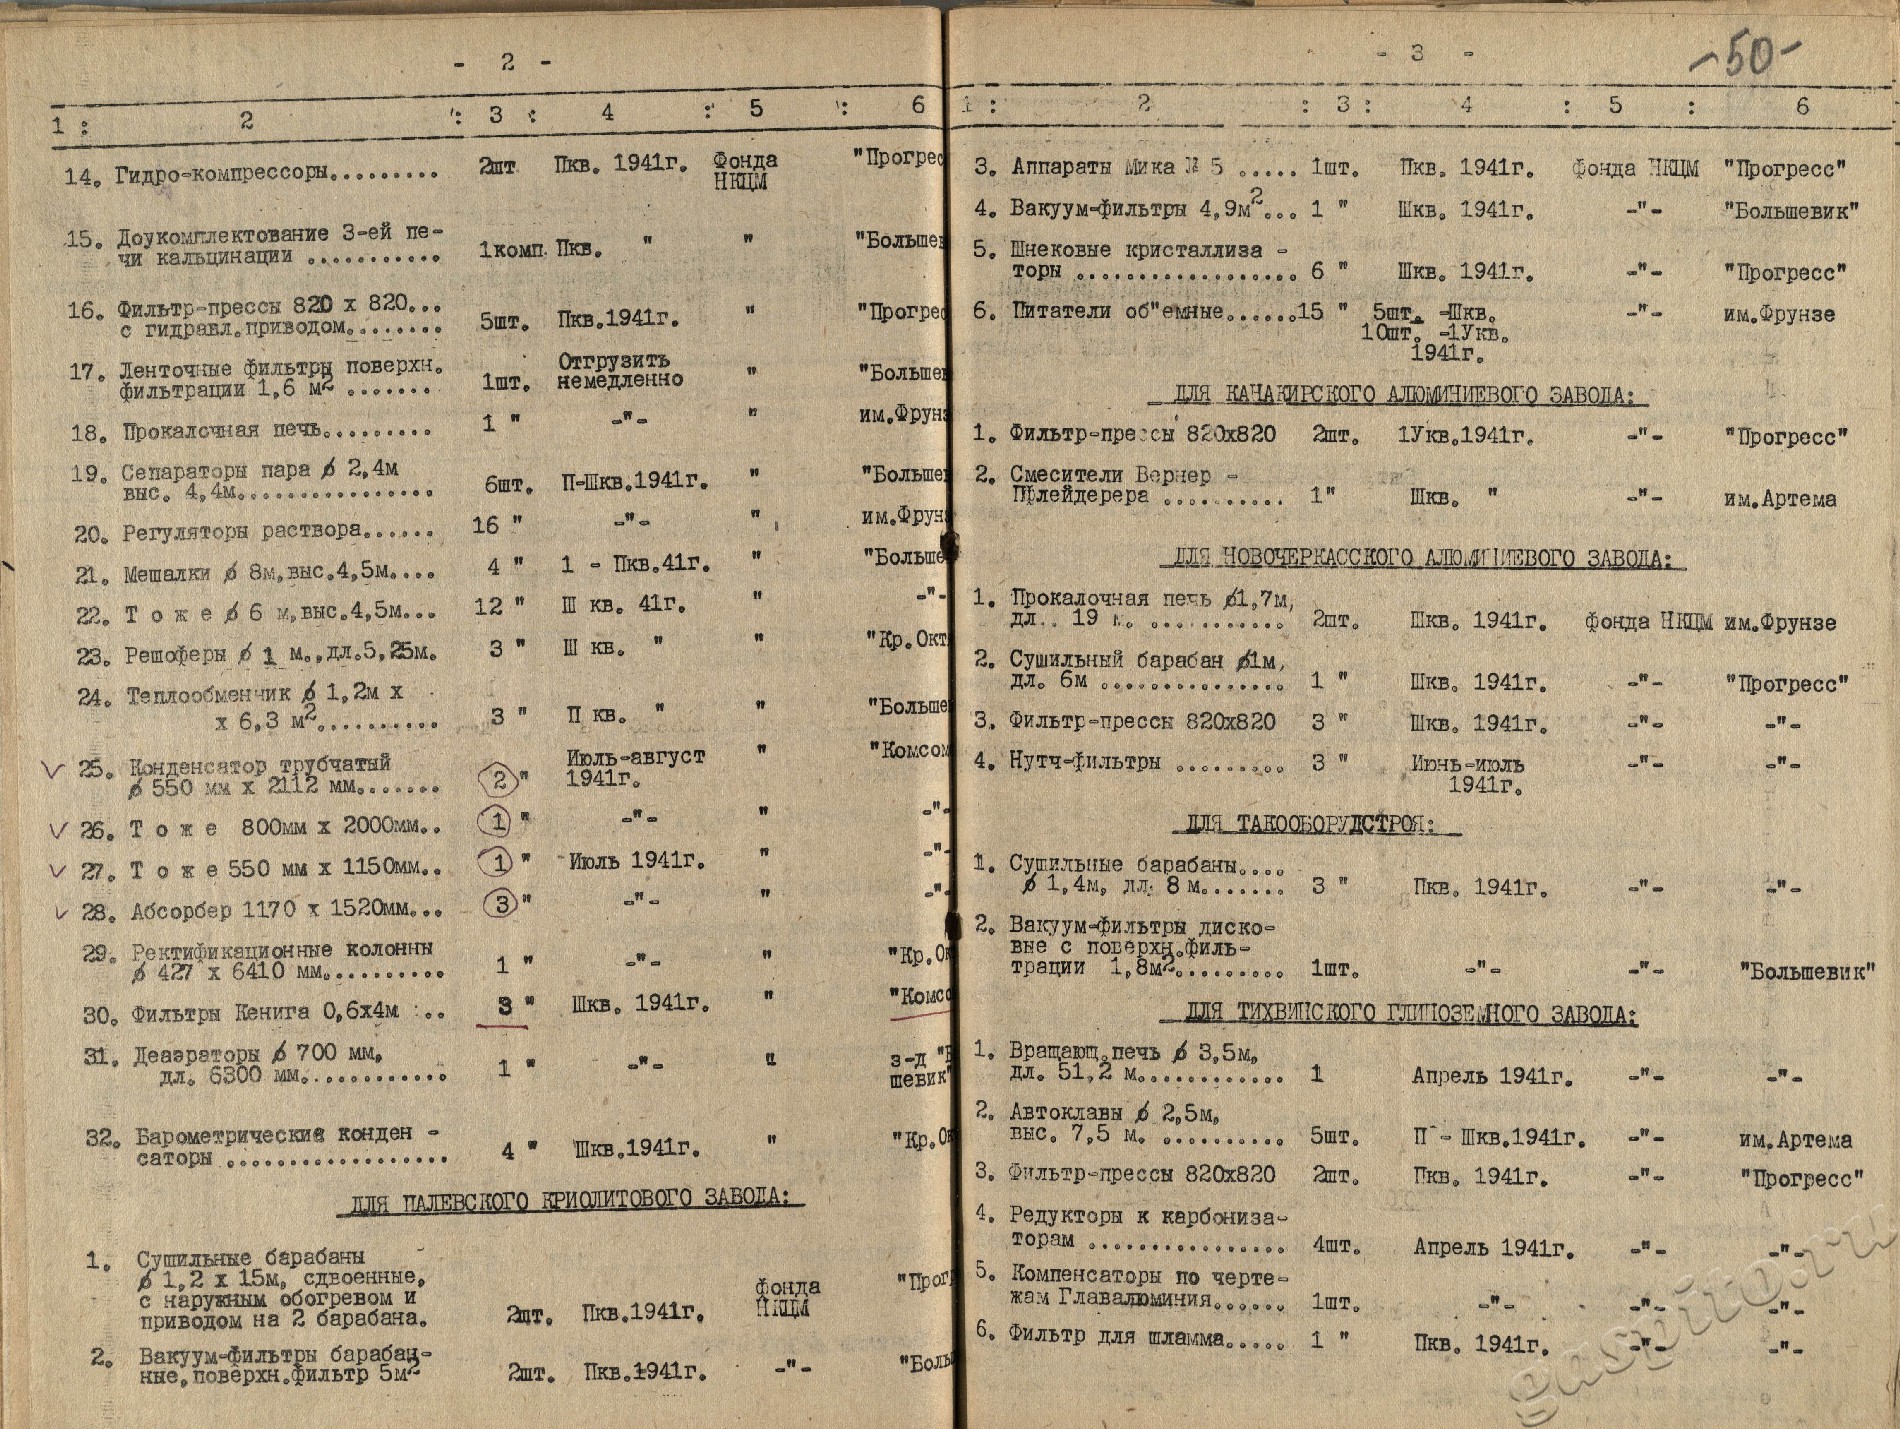 - 2 -
1 : 2 : 3 : 4 : 5 : 6
14. Гидро-компрессоры......... 2шт Пкв. 1941г. Фонда "Прогрес
НКЦМ
15. Доукомплектование 3-ей пе-
чи кальцинации ........... 1комп. Пкв. " " "Большев
16. Фильтр-прессы 820 х 820...
с гидравл.приводом........ 5шт. Пкв.1941г. " "Прогрес
17. Ленточные фильтры поверхн. Отгрузить
фильтрации 1,6 м2 ....... 1шт. немедленно " "Большев
18. Прокалочная печь......... 1 " -"- " им.Фрунз
19. Сепараторы пара ø 2,4м
выс. 4,4м................ 6шт. П-Шкв.1941г. " "Большев
20. Регуляторы раствора...... 16 " -"- " им.Фрунз
21. Мешалки ø 8м,выс.4,5м.... 4 " 1 - Пкв.41г. " "Больше
22. Т о ж е ø 6 м,выс.4,5м... 12 " Ш кв. 41г. " -"-
23. Решоферы ø 1 м.,дл.5,25м. 3 " Ш кв. " " "Кр.Окт
24. Теплообменчик ø 1,2м х
х 6,3 м2.......... 3 " П кв. " " "Больше
25. Конденсатор трубчатый Июль-август " "Комсом
ø 550 мм х 2112 мм....... 2 " 1941г.
26. Т о ж е 800мм х 2000мм.. 1 " -"- " -"-
27. Т о ж е 550 мм х 1150мм.. 1 " Июль 1941г. " -"-
28. Абсорбер 1170 х 1520мм... 3 " -"- " -"-
29. Ректификационные колонны
ø 427 х 6410 мм.......... 1 " -"- " "Кр.Ок
30. Фильтры Кенига 0,6х4м ... 3 " Шкв. 1941г. " "Комсо
31. Деаэраторы ø 700 мм, з-д "Б
дл. 6300 мм............ 1 " -"- " шевик"
32. Барометрические конден -
саторы .................. 4 " Шкв.1941г. " "Кр.Ок
ДЛЯ ПАЛЕВСКОГО КРИОЛИТОВОГО ЗАВОДА:
1. Сушильные барабаны
ø 1,2 х 15м, сдвоенные,
с наружным обогревом и фонда "Прогр
приводом на 2 барабана. 2шт. Пкв.1941г. НКЦМ
2. Вакуум-фильтры барабан-
ные,поверхн.фильтр 5м2 2шт. Пкв.1941г. -"- "Боль
- 3 -
-50-
1 : 2 : 3 : 4 : 5 : 6
3. Аппараты Мика № 5 ..... 1шт. Пкв. 1941г. фонда НКЦМ "Прогресс"
4. Вакуум-фильтры 4,9м2... 1 " Шкв. 1941г. -"- "Большевик"
5. Шнековые кристаллиза -
торы .................. 6 " Шкв. 1941г. -"- "Прогресс"
6. Питатели об"емные......15 " 5шт. -Шкв. -"- им.Фрунзе
10шт. -1Укв.
1941г.
ДЛЯ КАЧАКИРСКОГО АЛЮМИНИЕВОГО ЗАВОДА:
1. Фильтр-прессы 820х820 2шт. 1Укв.1941г. -"- "Прогресс"
2. Смесители Вернер -
Пфлейдерера .......... 1" Шкв. " -"- им.Артема
ДЛЯ НОВОЧЕРКАССКОГО АЛЮМИНИЕВОГО ЗАВОДА:
1. Прокалочная печь ø1,7м,
дл.. 19 м. ........... 2шт. Шкв. 1941г. фонда НКЦМ им.Фрунзе
2. Сушильный барабан ø1м,
дл. 6м ............... 1 " Шкв. 1941г. -"- "Прогресс"
3. Фильтр-прессы 820х820 3 " Шкв. 1941г. -"- -"-
4. Нутч-фильтры ......... 3 " Июнь-июль -"- -"-
1941г.
ДЛЯ ТАКООБОРУДСТРОЯ:
1. Сушильные барабаны....
ø 1,4м, дл. 8 м....... 3 " Пкв. 1941г. -"- -"-
2. Вакуум-фильтры диско-
вые с поверхн.филь-
трации 1,8м2......... 1шт. -"- -"- "Большевик"
ДЛЯ ТИХВИНСКОГО ГЛИНОЗЕМНОГО ЗАВОДА:
1. Вращающ.печь ø 3,5м,
дл. 51,2 м............ 1 Апрель 1941г. -"- -"-
2. Автоклавы ø 2,5м,
выс. 7,5 м. .......... 5шт. П - Шкв.1941г. -"- им.Артема
3. Фильтр-прессы 820х820 2шт. Пкв. 1941г. -"- "Прогресс"
4. Редукторы к карбониза-
торам ................ 4шт. Апрель 1941г. -"- -"-
5. Компенсаторы по черте-
жам Главалюминия...... 1шт. -"- -"- -"-
6. Фильтр для шламма..... 1 " Пкв. 1941г. -"- -"-
gaspito.ru